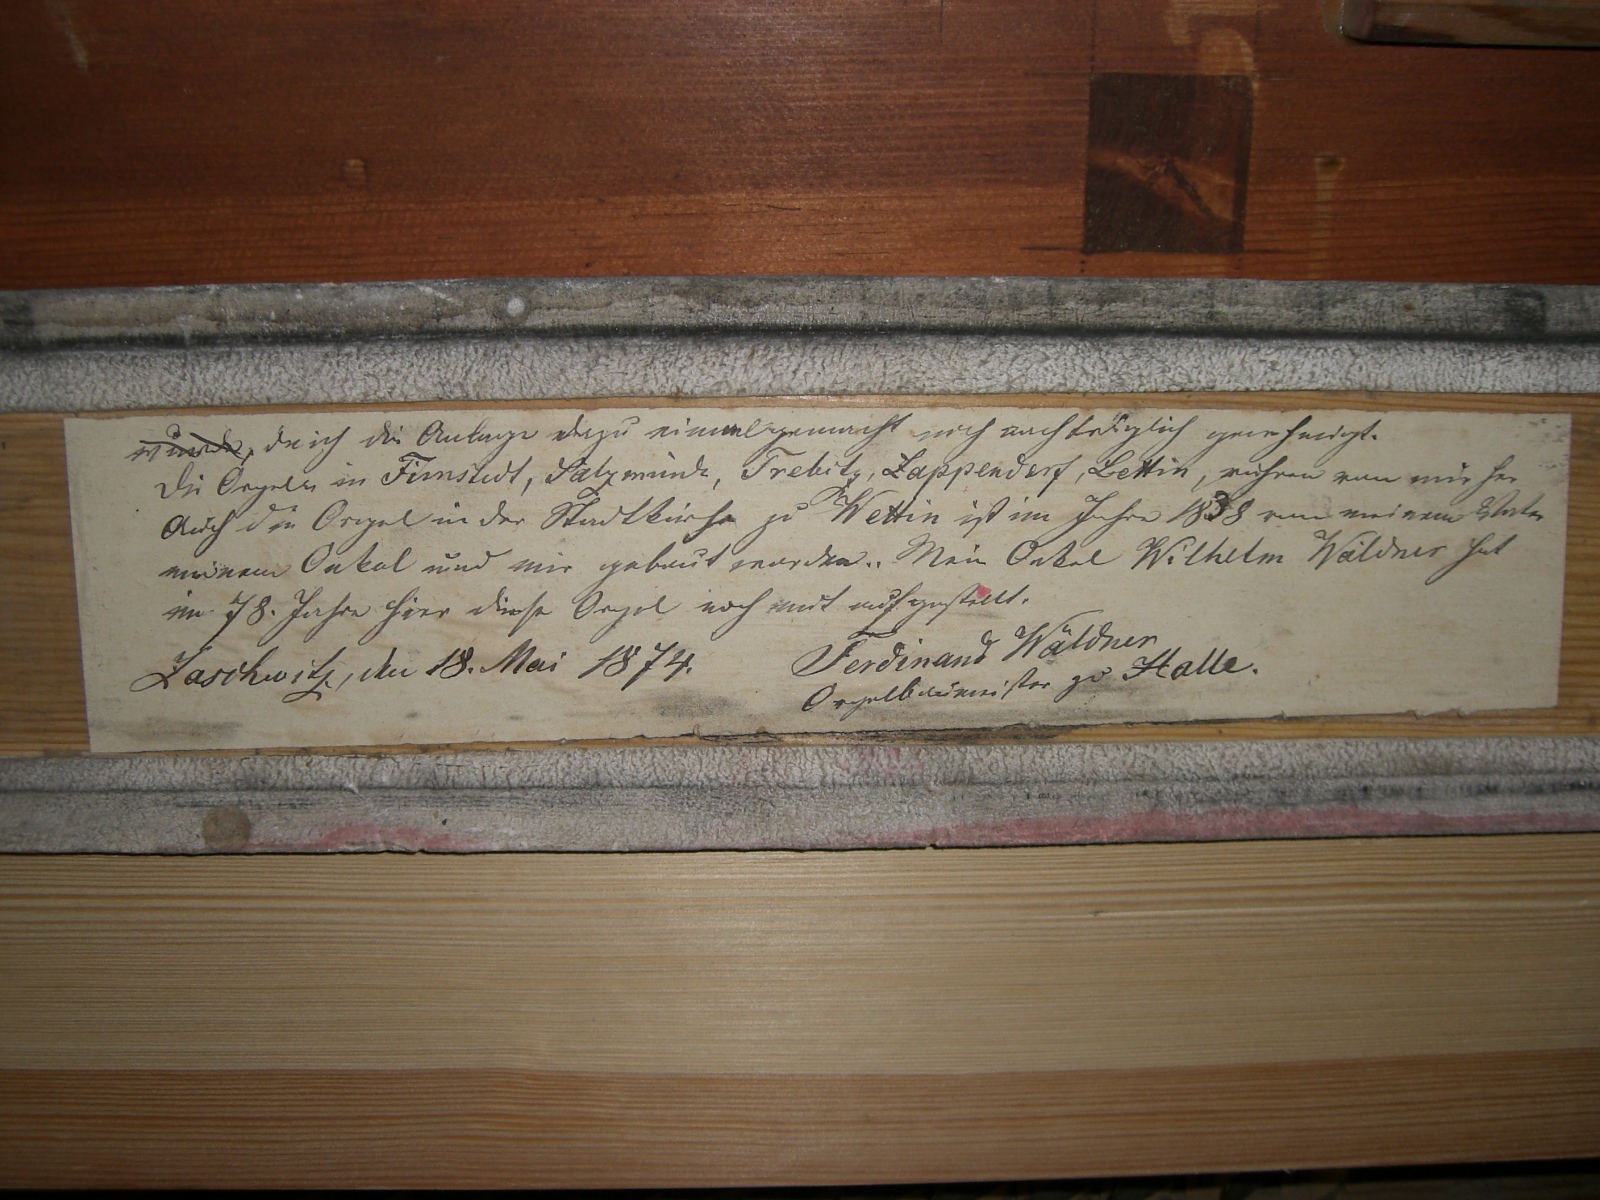 wurde, da ich die Anlage dazu einmal gemacht noch nachträglich genehmigt.
Die Orgeln in Fienstedt, Salzmünde, Trebitz, Zappendorf, Lettin, rühren von mir her
Auch die Orgel in der Stadtkirche zu Wettin ist im Jahre 1838 von meinem Vater
meinem Onkel und mir gebaut worden.. Mein Onkel Wilhelm Wäldner hat
im 78. Jahre hier diese Orgel noch mit aufgestellt.
Zaschwitz, den 18. Mai 1874.
Ferdinand Wäldner
Orgelbaumeister zu Halle.